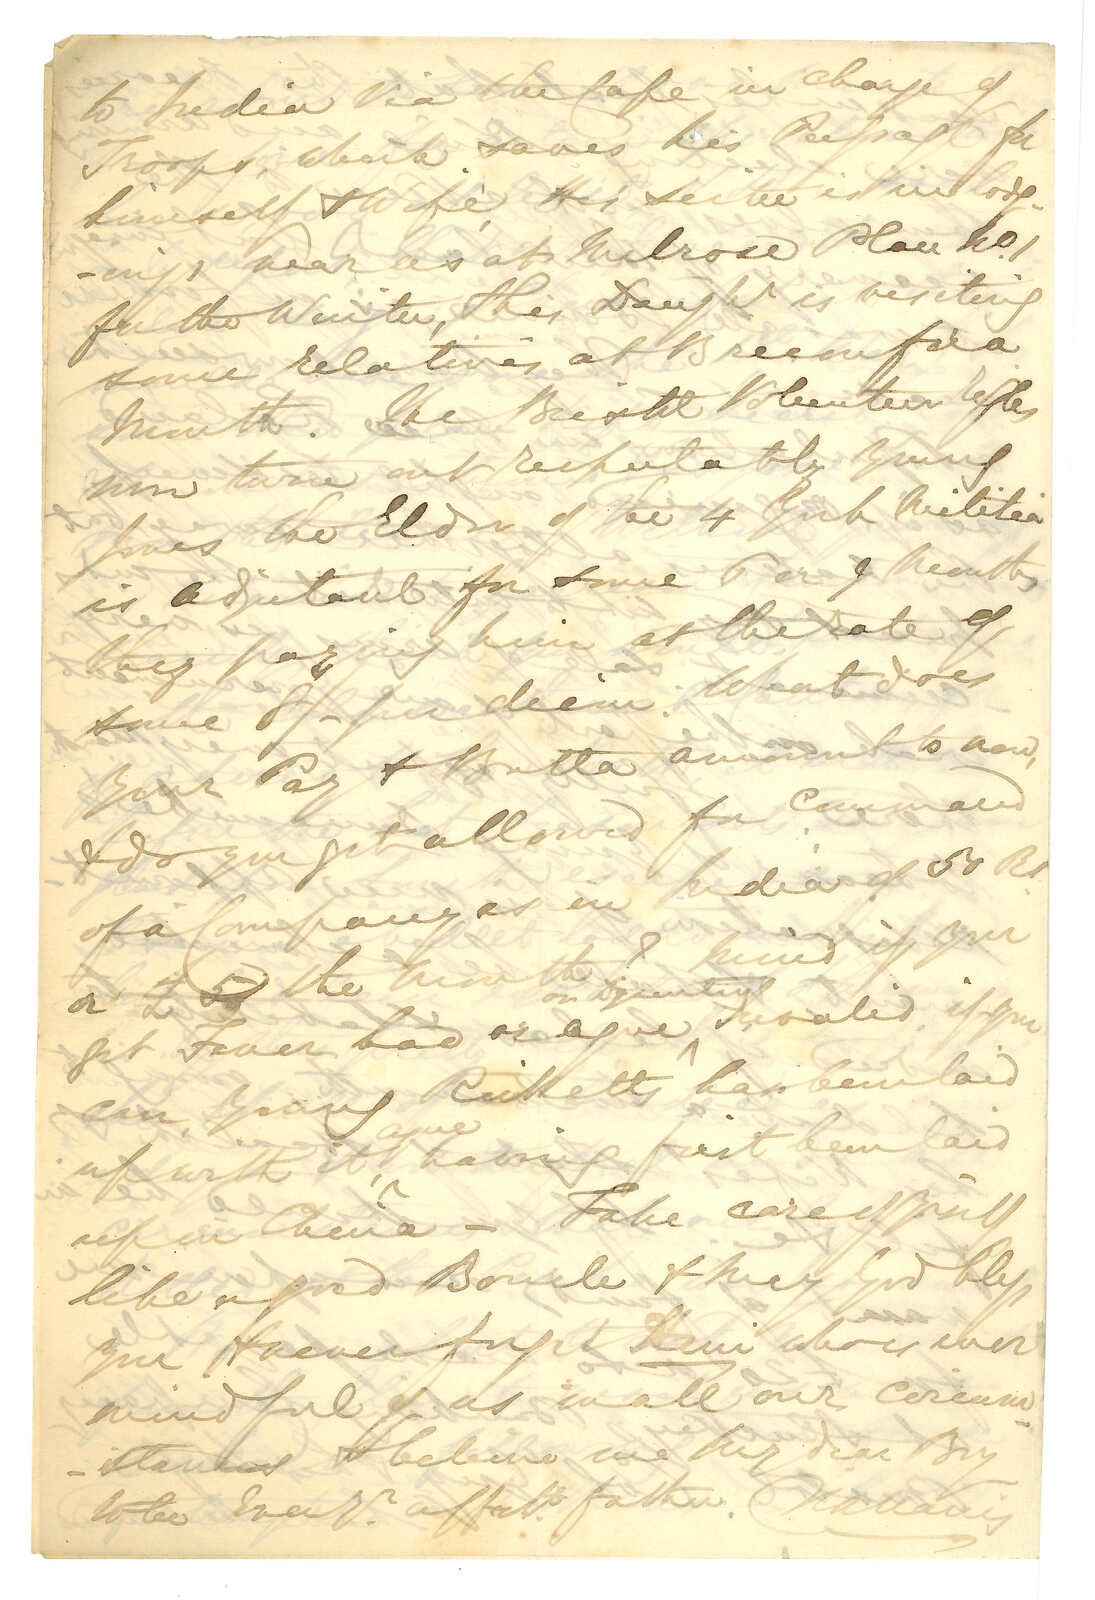 to India via the Cape in charge of
Troops, which saves his Passage for
himself & Wife, His sister is in lodg-
-ings near us at Melrose Place No 1
for the Winter, This Daughr is visiting
some relatives at Brecon for a
Month. The Bristol Volunteer Rifles
now turn out respectably young
Jones the Elder of the 4 York Militia
is adjutant for some 6 or 9 Months
they paying him at the rate of
some 8/- per diem. What does
your Pay & Batta amount to now,
& do you get allowed for command
of a Company as in India of 50 Rs
or £5 the Month? Mind if you
get Fever bad or ague or Dysentery Invalid if you
can, Young Ricketts has been laid
up with it, ague having first been laid
up in China - Take care of yourself
like a good Bowle & may God bless
you & never forget Him who is ever
mindful of us in all our circum-
-stances & believe me My dear Boy
to be Ever yr. affectte father.